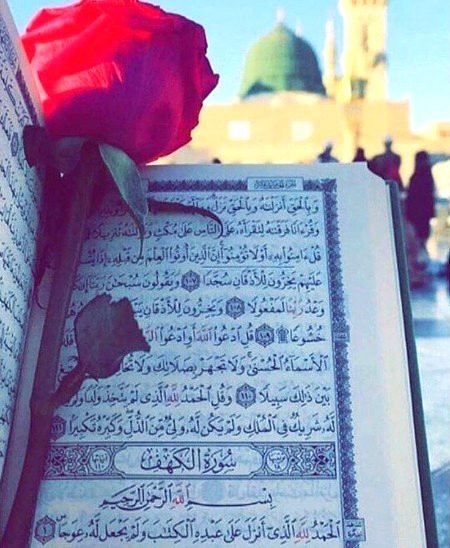 وَبِٱلْحَقِّ أَنزَلْنَٰهُ وَبِٱلْحَقِّ نَزَلَ
وَقُرْءَانًا فَرَقْنَٰهُ لِتَقْرَأَهُۥ عَلَى ٱلنَّاسِ عَلَىٰ مُكْثٍ وَنَزَّلْنَٰهُ تَنزِيلًا
قُلْ ءَامِنُوا۟ بِهِۦٓ أَوْ لَا تُؤْمِنُوٓا۟ إِنَّ ٱلَّذِينَ أُوتُوا۟ ٱلْعِلْمَ مِن قَبْلِهِۦٓ إِذَا يُتْلَىٰ
عَلَيْهِمْ يَخِرُّونَ لِلْأَذْقَانِ سُجَّدًا ١٠٧ وَيَقُولُونَ سُبْحَٰنَ رَبِّنَآ إِن
وَعْدُ رَبِّنَا لَمَفْعُولًا ١٠٨ وَيَخِرُّونَ لِلْأَذْقَانِ
خُشُوعًا ۩ ١٠٩ قُلِ ٱدْعُوا۟ ٱللَّهَ أَوِ ٱدْعُوا۟
ٱلْأَسْمَآءُ ٱلْحُسْنَىٰ وَلَا تَجْهَرْ بِصَلَاتِكَ وَلَا تُخَافِتْ
بَيْنَ ذَٰلِكَ سَبِيلًا ١١٠ وَقُلِ ٱلْحَمْدُ لِلَّهِ ٱلَّذِى لَمْ يَتَّخِذْ وَلَدًا وَلَمْ
لَّهُۥ شَرِيكٌ فِى ٱلْمُلْكِ وَلَمْ يَكُن لَّهُۥ وَلِىٌّ مِّنَ ٱلذُّلِّ وَكَبِّرْهُ تَكْبِيرًۢا ١١١
سُورَةُ ٱلْكَهْفِ
بِسْمِ ٱللَّهِ ٱلرَّحْمَٰنِ ٱلرَّحِيمِ
ٱلْحَمْدُ لِلَّهِ ٱلَّذِىٓ أَنزَلَ عَلَىٰ عَبْدِهِ ٱلْكِتَٰبَ وَلَمْ يَجْعَل لَّهُۥ عِوَجَا ١